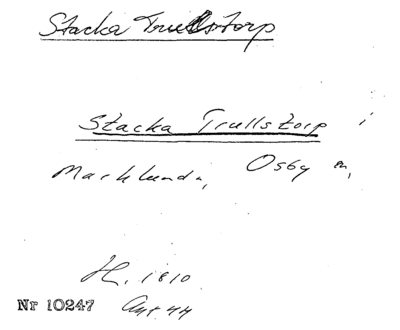 Stacka Trullstorp
Stacka Trullstorp i
Marklunda, Osby sn,
H. 1810
Nr 10247 Ant 44